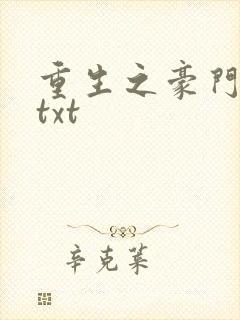 重生之豪門
txt
辛克萊